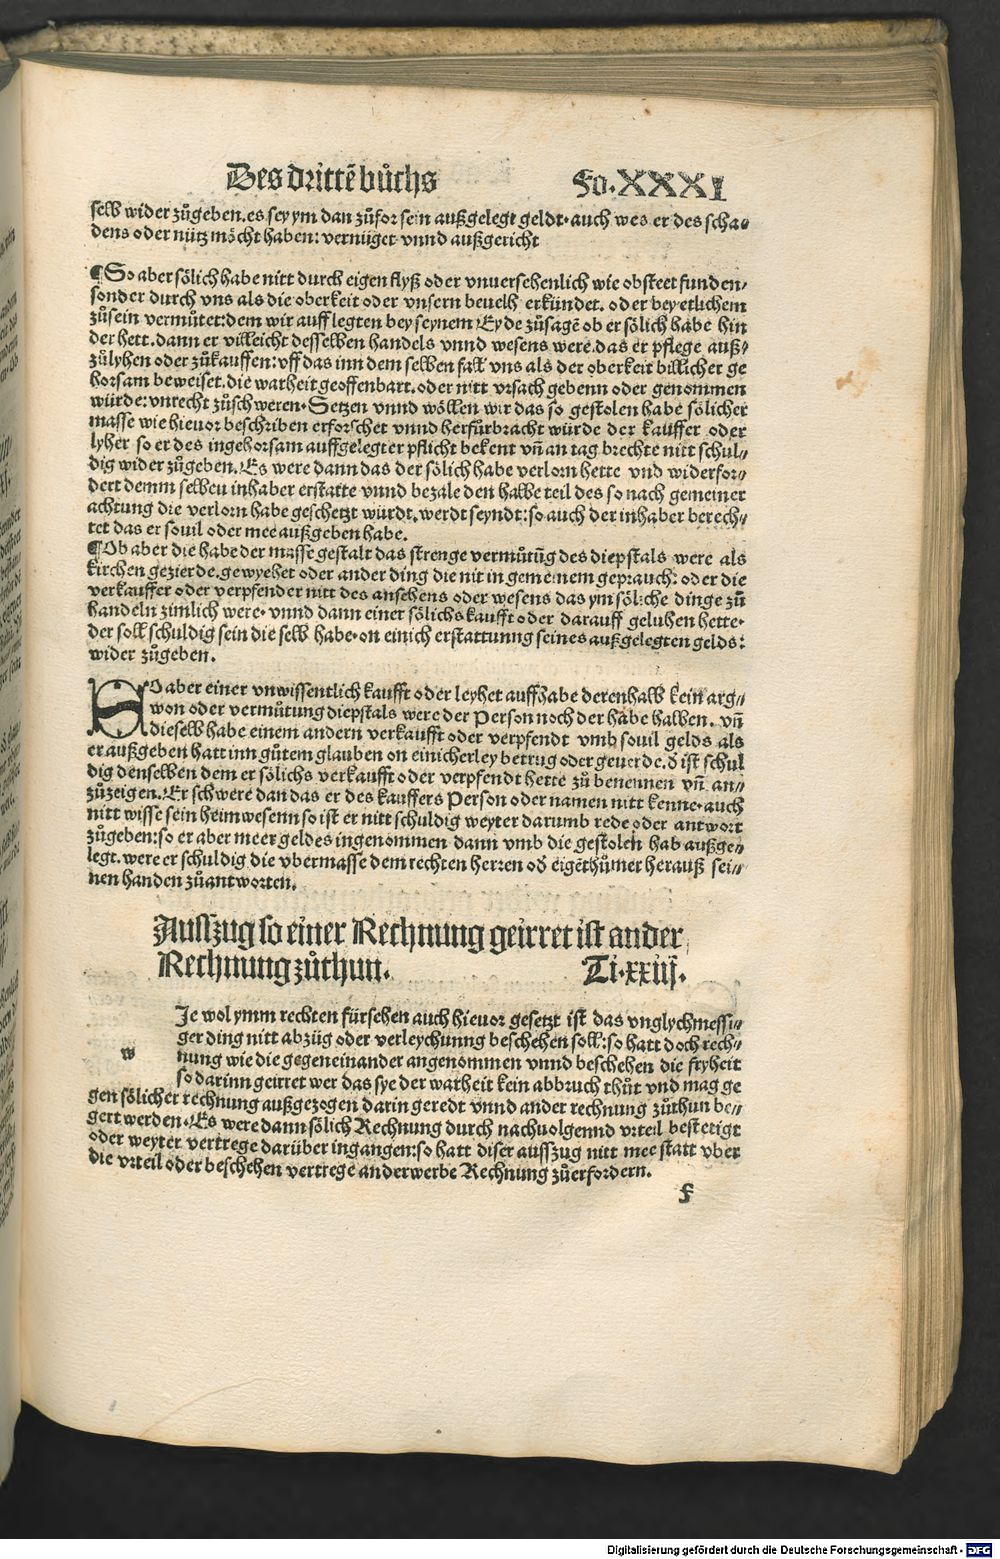 Des drittē bůchs Fo.XXXI
selb wider zůgeben. es sey ym dan zůfor sein außgelegt geldt. auch wes er des scha⸗
dens oder nütz möcht haben: vernüget vnnd außgericht
¶So aber sölich habe nitt durch eigen flyß oder vnuersehenlich wie obsteet funden⸗
sonder durch vns als die oberkeit oder vnsern beuelh erkündet. oder bey etlichem
zůsein vermůtet: dem wir auff legten bey seynem Eyde zůsagē ob er sölich habe hin
der hett. dann er villeicht desselben handels vnnd wesens were. das er pflege auß⸗
zůlyhen oder zůkauffen: vff das inn dem selben fall vns als der oberkeit billicher ge
horsam beweiset. die warheit geoffenbart. oder nitt vrsach gebenn oder genommen
würde: vnrecht zůschweren. Setzen vnnd wöllen wir das so gestolen habe sölicher
masse wie hieuor beschriben erforschet vnnd herfürbracht würde der kauffer oder
lyher so er des ingehorsam auffgelegter pflicht bekent vñ an tag brechte nitt schul⸗
dig wider zůgeben. Es were dann das der sölich habe verlorn hette vnd widerfor⸗
dert demm selben inhaber erstatte vnnd bezale den halbe teil des so nach gemeiner
achtung die verlorn habe geschetzt würdt. werdt seyndt: so auch der inhaber berech⸗
tet das er souil oder mee außgeben habe.
¶Ob aber die habe der masse gestalt das strenge vermůtūg des diepstals were als
kirchen gezierde. gewyehet oder ander ding die nit in gemeinem geprauch: oder die
verkauffer oder verpfender nitt des ansehens oder wesens das ym söliche dinge zů
handeln zimlich were. vnnd dann einer sölichs kaufft oder darauff geluhen hette.
der soll schuldig sein die selb habe. on einich erstattunng seines außgelegten gelds:
wider zůgeben.
SO aber einer vnwissentlich kaufft oder leyhet auff Habe derenhalb kein arg⸗
won oder vermůtung diepstals were der Person noch der habe halben. vñ
dieselb habe einem andern verkaufft oder verpfendt vmb souil gelds als
er außgeben hatt inn gůtem glauben on einicherley betrug oder geuerde. ð ist schul
dig denselben dem er sölichs verkaufft oder verpfendt hette zů benennen vñ an⸗
zůzeigen. Er schwere dan das er des kauffers Person oder namen nitt kenne. auch
nitt wisse sein heimwesenn so ist er nitt schuldig weyter darumb rede oder antwort
zůgeben: so er aber meer geldes ingenommen dann vmb die gestolen hab außge⸗
legt. were er schuldig die vbermasse dem rechten herren oð eigēthümer herauß sei⸗
nen handen zůantworten.
Ausszug so einer Rechnung geirret ist ander
Rechnung zůthun. Ti.xxiij.
w Je wol ymm rechten fürsehen auch hieuor gesetzt ist das vnglychmessi⸗
ger ding nitt abzüg oder verleychunng beschehen soll: so hatt doch rech⸗
nung wie die gegeneinander angenommen vnnd beschehen die fryheit
so darinn geirret wer das sye der warheit kein abbruch thůt vnd mag ge
gen sölicher rechnung außgezogen darin geredt vnnd ander rechnung zůthun be⸗
gert werden. Es were dann sölich Rechnung durch nachuolgennd vrteil bestetigt
oder weyter vertrege darüber ingangen: so hatt diser ausszug nitt mee statt vber
die vrteil oder beschehen vertrege anderwerbe Rechnung zůerfordern.
f
Digitalisierung gefördert durch die Deutsche Forschungsgemeinschaft - DFG